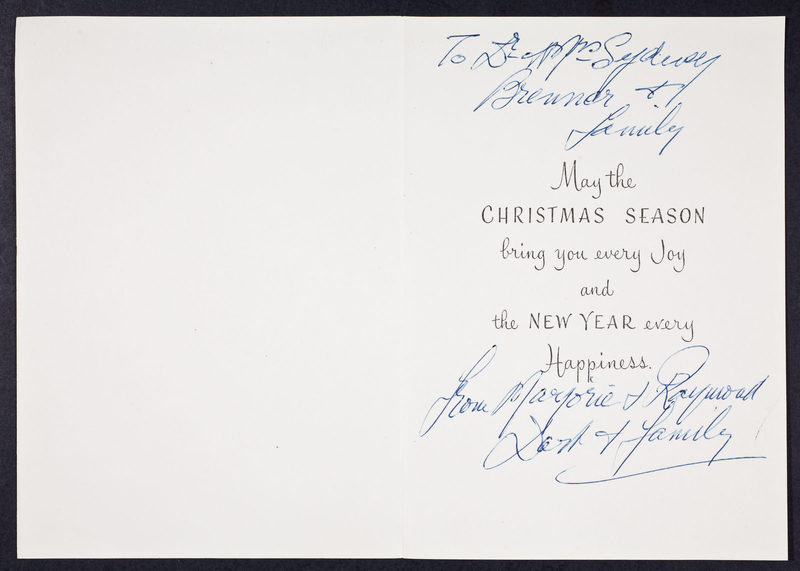 To Dr & Mrs Sydney
Brennar &
family
May the
CHRISTMAS SEASON
bring you every Joy
and
the NEW YEAR every
Happiness.
From Marjorie & Raymond
Dart & family